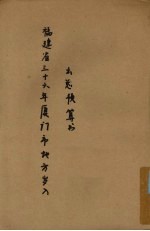 福建省三十六年厦门市地方岁入
出总预算书